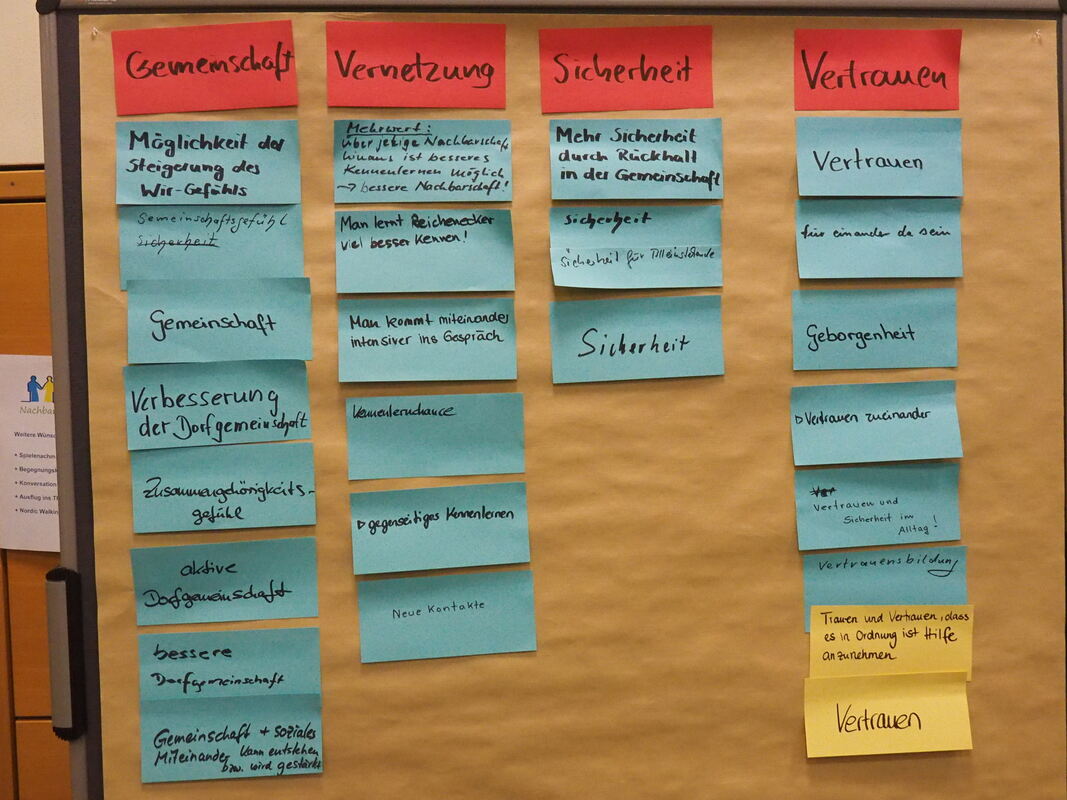 Gemeinschaft
Möglichkeit der
Steigerung des
Wir-Gefühls
Gemeinschaftsgefühl
Sicherheit
Gemeinschaft
Verbesserung
der Dorfgemeinschaft
Zusammengehörigkeits-
gefühl
aktive
Dorfgemeinschaft
bessere
Dorfgemeinschaft
Gemeinschaft + soziales
Miteinander kann entstehen
bzw. wird gestärkt
Vernetzung
Mehrwert:
über jetzige Nachbarschaft
hinaus ist besseres
Kennenlernen möglich
→ bessere Nachbarschaft!
Man lernt Reichenecker
viel besser kennen!
Man kommt miteinander
intensiver ins Gespräch
Kennenlernchance
▷ gegenseitiges Kennenlernen
Neue Kontakte
Sicherheit
Mehr Sicherheit
durch Rückhalt
in der Gemeinschaft
Sicherheit
Sicherheit für
Sicherheit
Vertrauen
Vertrauen
für einander da sein
Geborgenheit
▷ Vertrauen zueinander
Ver
Vertrauen und
Sicherheit im
Alltag!
Vertrauensbildung
Trauen und Vertrauen, dass
es in Ordnung ist Hilfe
anzunehmen.
Vertrauen
Nachba
Weitere Wünsc
• Spielenachm
• Begegnungs
• Konversation
• Ausflug ins Th
• Nordic Walkin